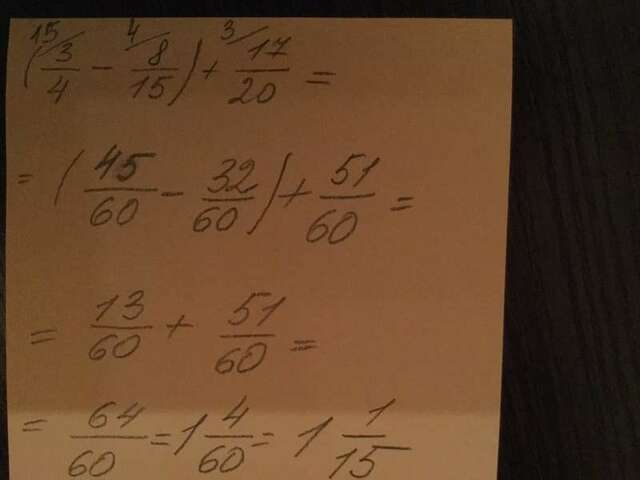 (15/3/4 - 4/8/15) + 3/17/20 =
= (45/60 - 32/60) + 51/60 =
= 13/60 + 51/60 =
= 64/60 = 1 4/60 = 1 1/15